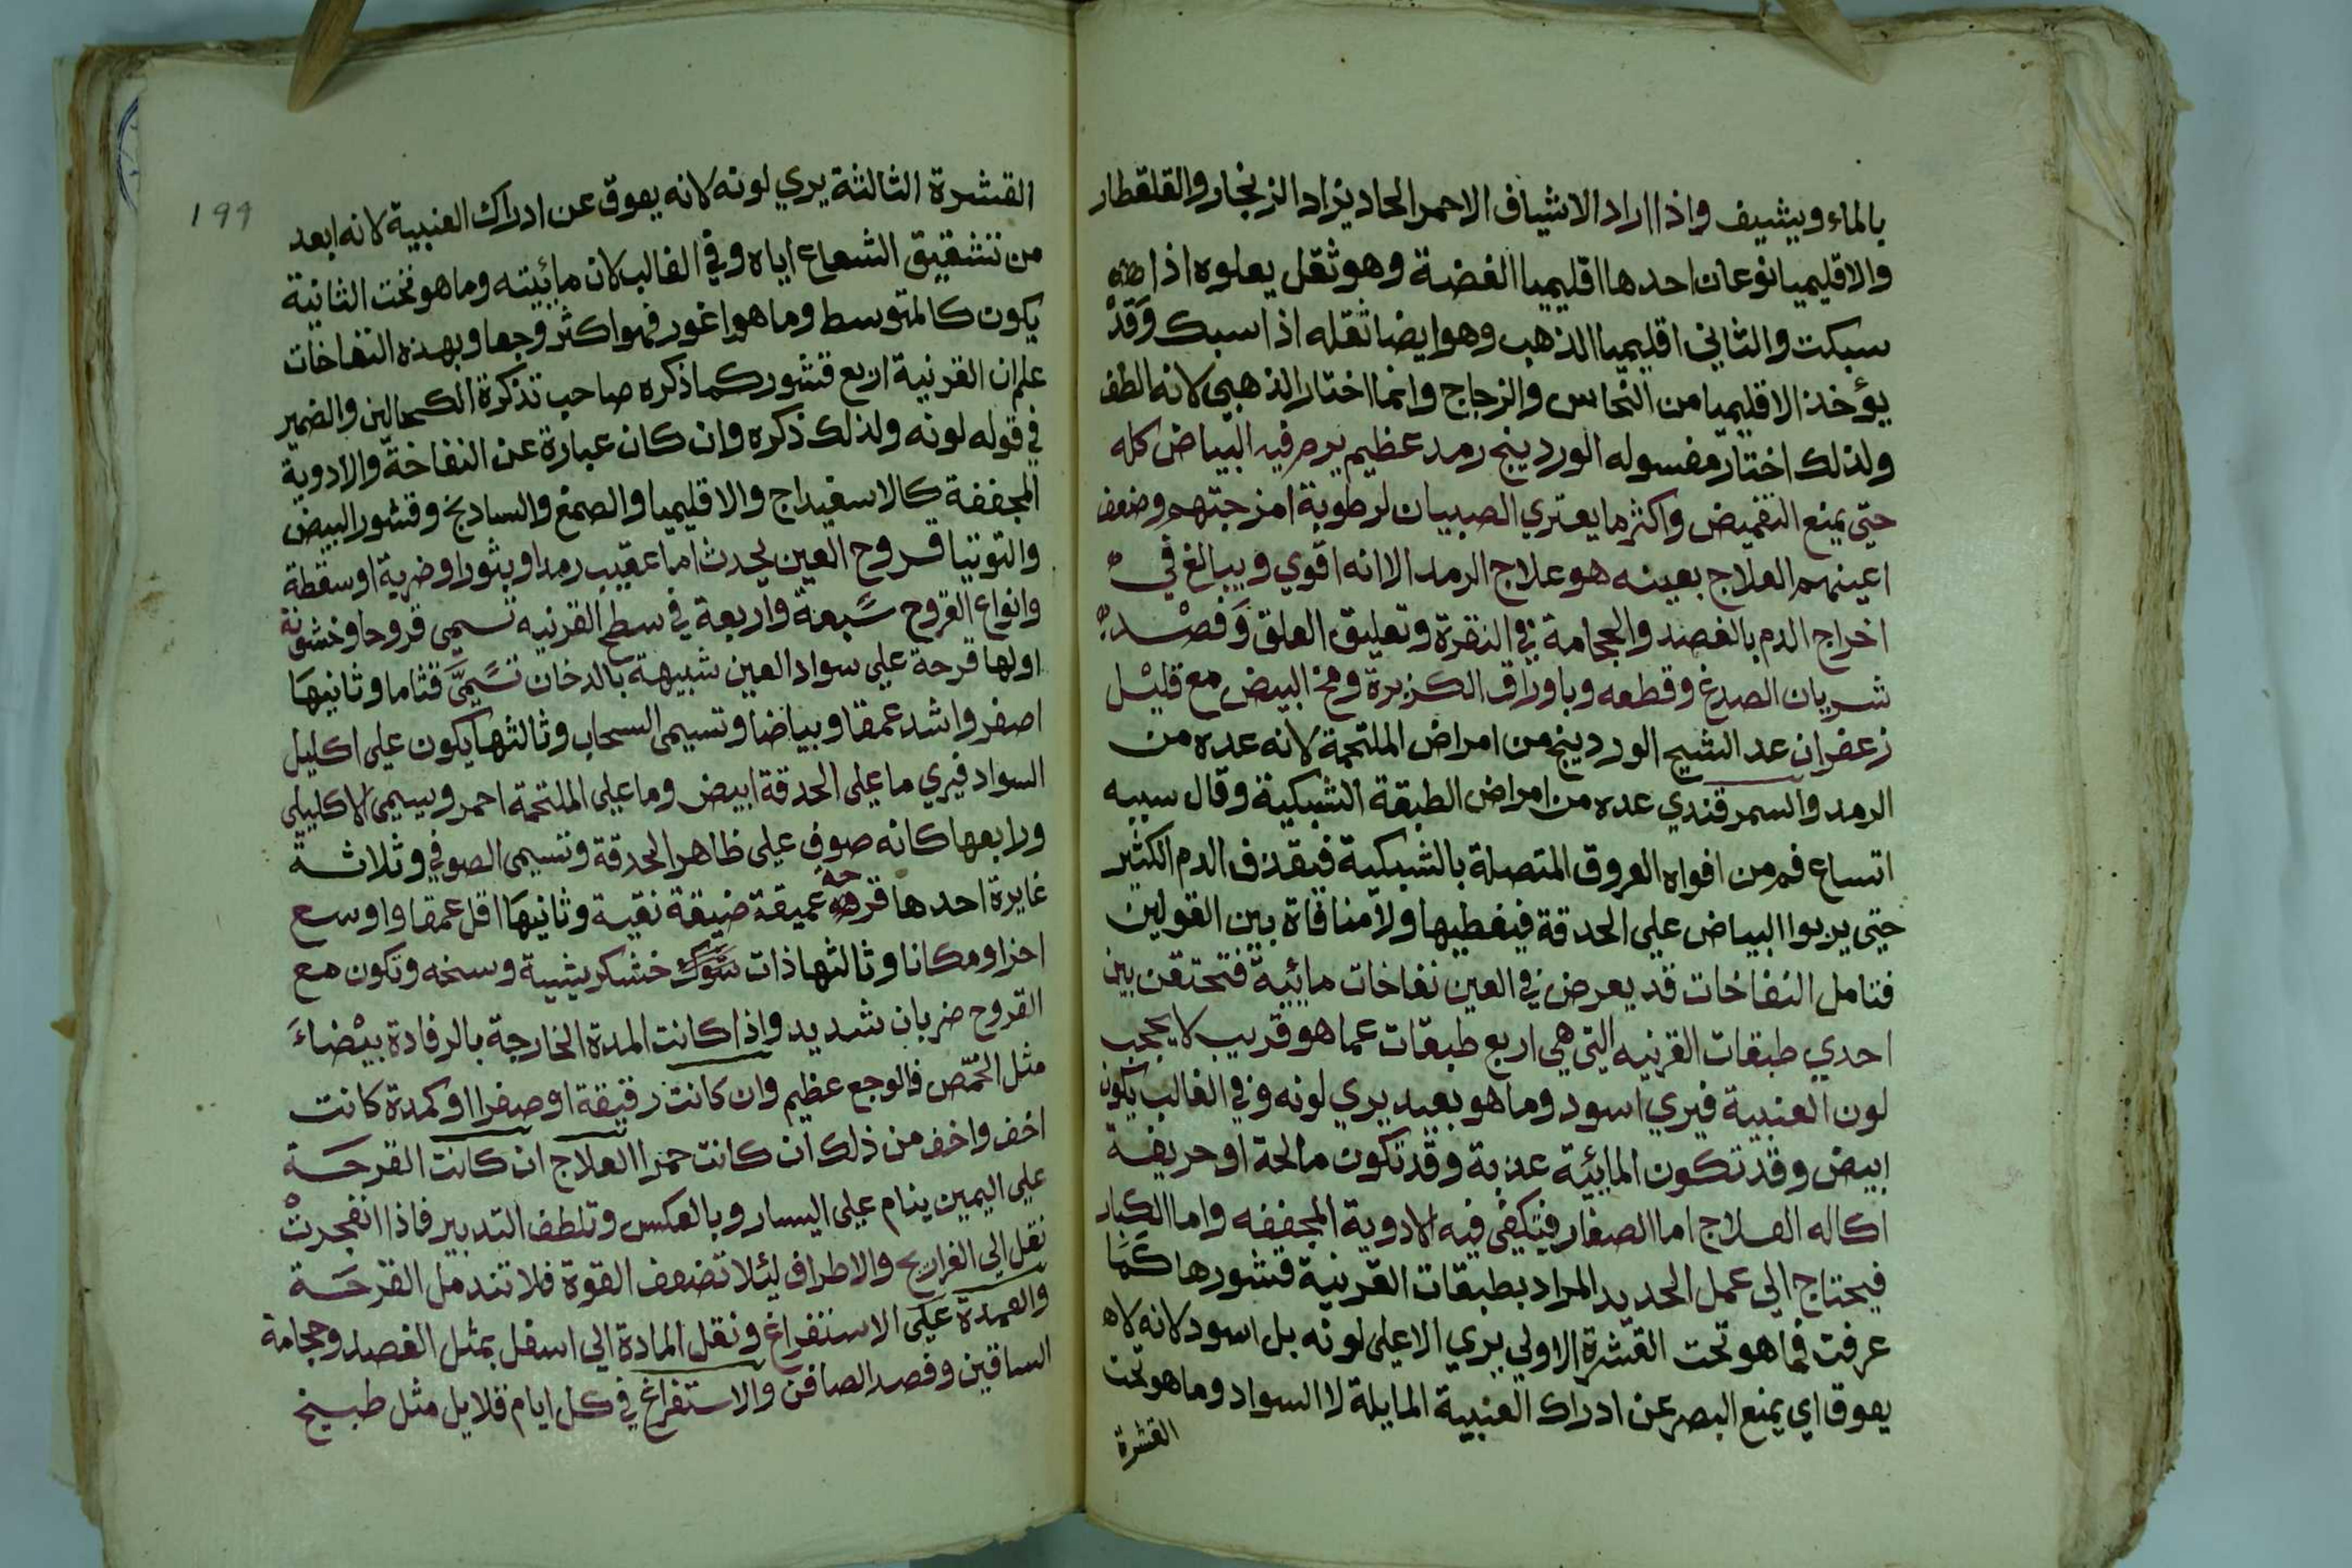 بالماء ويشيف واذا اراد الاشياف الاحمر الحاد يزاد الزنجار والقلقطار
والاقليميا نوعان احدها اقليميا الفضة وهو ثقل يعلوه اذا
سبكت والثاني اقليميا الذهب وهو ايضا ثقله اذا سبك وقد
يؤخذ الاقليميا من النحاس والزجاج وانما اختار الذهبي لانه الطف
ولذلك اختار مغسوله الوردينج رمد عظيم يرم فيه البياض كله
حتى يمنع التغميض واكثر ما يعتري الصبيان لرطوبة امزجتهم وضعف
اعينهم العلاج بعينه هو علاج الرمد الا انه اقوي ويبالغ في
اخراج الدم بالفصد والحجامة في النقرة وتعليق العلق وفصد
شريان الصدغ وقطعه وباوراق الكزبرة ومخ البيض مع قليل
زعفران عد الشيخ الوردينج من امراض الملتحمة لانه عده من
الرمد والسمرقندي عده من امراض الطبقة الشبكية وقال سببه
اتساع فم من افواه العروق المتصلة بالشبكية فيقذف الدم الكثير
حتى يربوا البياض علي الحدقة فيغطيها ولا منافاة بين القولين
فتامل النفاخات قد يعرض في العين نفاخات مائية فتحتقن بين
احدي طبقات القرنيه التي هي اربع طبقات عما هو قريب لا يحجب
لون العنبية فيري اسود وما هو بعيد يري لونه وفي الغالب يكون
ابيض وقد تكون المايئة عذبة وقد تكون مالحة او حريفة
اكاله العلاج اما الصغار فيكفي فيه الادوية المجففه واما الكبار
فيحتاج الي عمل الحديد المراد بطبقات القرنية قشورها كما
عرفت فما هو تحت القشرة الاولي يري الاعلي لونه بل اسود لانه لا
يعوق اي يمنع البصر عن ادراك العنبية المايلة لا السواد وما هو تحت
القشرة
199
القشرة الثالثة يري لونه لانه يعوق عن ادراك العنبية لانه ابعد
من تشقيق الشعاع اياه وفي الغالب لان مايئيته وما هو تحت الثانية
يكون كالمتوسط وما هو اغور فهو اكثر وجعا وبهذه النفاخات
علم ان القرنية اربع قشور كما ذكره صاحب تذكرة الكحالين والضمير
في قوله لونه ولذلك ذكره وان كان عبارة عن النفاخة والادوية
المجففة كالاسفيداج والاقليميا والصمغ والسادنج وقشور البيض
والتوتيا قروح العين يحدث اما عقيب رمد او بثور او ضربة او سقطة
وانواع القروح سبعة واربعة في سطح القرنيه تسمي قروحا وخشونة
اولها قرحة علي سواد العين شبيهة بالدخان تسمى قتاما وثانيها
اصغر واشد عمقا وبياضا وتسيمى السحاب وثالثها يكون علي اكليل
السواد فيري ما علي الحدقة ابيض وما علي الملتحمة احمر ويسمى الاكليلي
ورابعها كانه صوف علي ظاهر الحدقة وتسيمى الصوفي وثلاثة
غايرة احدها قرحة عميقة ضيقة نقية وثانيها اقل عمقا واوسع
اخذا ومكانا وثالثها ذات خشكريشية وسخه وتكون مع
القروح ضربان شديد واذا كانت المدة الخارجة بالرفادة بيضاء
مثل الحمص فالوجع عظيم وان كانت رقيقة او صفرا او كمدة كانت
اخف واخف من ذلك ان كانت حمرا العلاج ان كانت القرحة
علي اليمين ينام علي اليسار وبالعكس وتلطف التدبير فاذا انفجرت
نقل الي الفراريج والاطراف ليئلا تضعف القوة فلا تندمل القرحة
والعمدة علي الاستفراغ ونقل المادة الي اسفل بمثل الفصد وحجامة
الساقين وفصد الصافن والاستفراغ في كل ايام قلايل مثل طبيخ